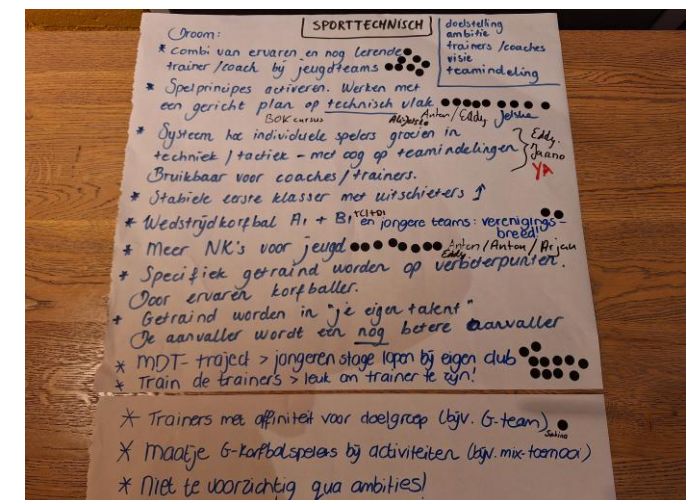 SPORTTECHNISCH
doelstelling
ambitie
trainers / coaches
visie
teamindeling
Droom:
* combi van ervaren en nog lerende
trainer / coach bij jeugdteams
* Spelprincipes activeren. Werken met
een gericht plan op technisch vlak
BOK cursus Anton / Eddy Jelske
* Systeem hoe individuele spelers groeien in
techniek / tactiek - met oog op teamindelingen
Bruikbaar voor coaches / trainers.
Eddy.
YA
* Stabiele eerste klasser met uitschieters ↑
* Wedstrijdkorfbal A1 + B1 +C1+D1 en jongere teams: verenigings-
breed!
* Meer NK's voor jeugd Anton / Anton / Arjan
Eddy
* Specifiek getraind worden op verbeterpunten.
Door ervaren korfballer.
* Getraind worden in "je eigen talent"
De aanvaller wordt een nog betere aanvaller
* MDT-traject > jongeren stage lopen bij eigen club
* Train de trainers > leuk om trainer te zijn!
* Trainers met affiniteit voor doelgroep (bijv. G-team)
* maatje G-korfbalspelers bij activiteiten (bijv. mix-toernooi)
* Niet te voorzichtig qua ambities!